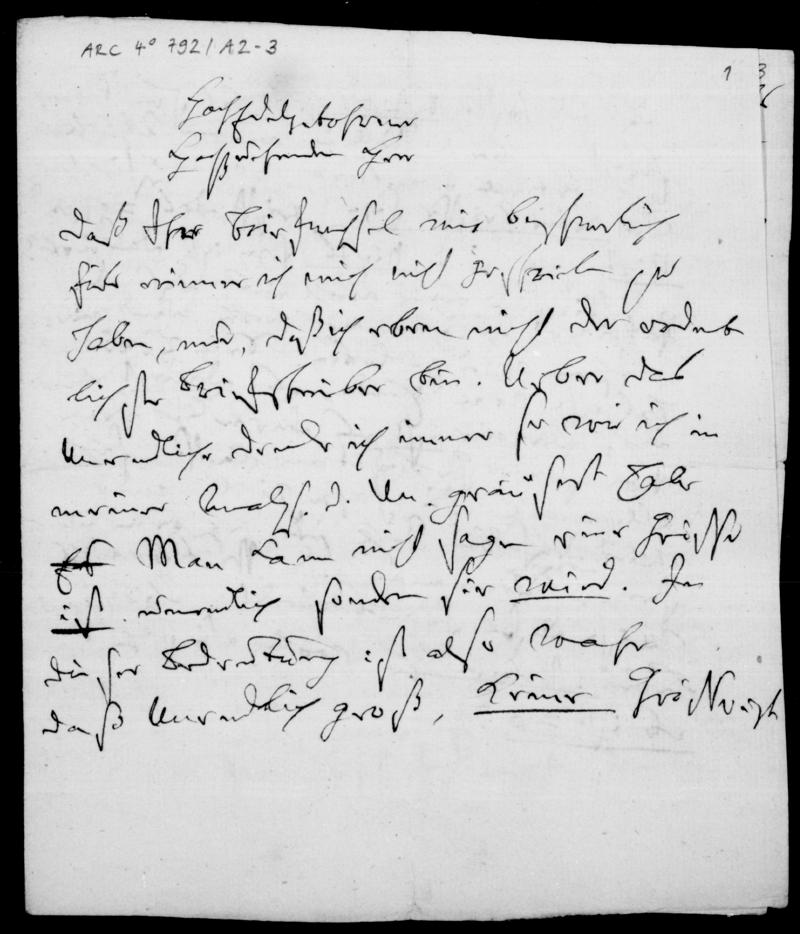 ARC 4° 792 / A2-3
1 3
Hochedelgebohrner
Hochzuehrender Herr
daß Ihr Briefwechsel mir beschwerlich
für erinnere ich mich nicht geschrieben zu
haben, nur, daß ich eben nicht der ordent
lichste Briefschreiber bin. Ueber das
Unendliche denke ich immer so wie ich in
meiner Analys. d. Un. geäusert habe
Man kann nicht sagen eine Grösse
ist unendlich sondern sie wird. In
dieser Bedeutung ist also wahr
daß Unendlich groß, keine Grösse ist